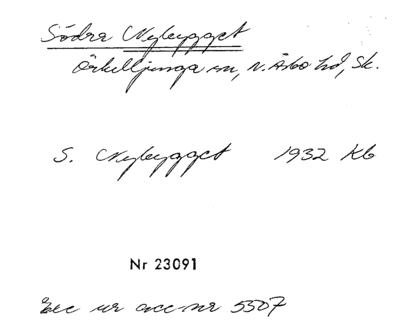 Södra Nybygget
Örkelljunga sn, N. Åsbo hd, Sk.
S. Nybygget 1932 Kb
Nr 23091
Exc ur acc nr 5507